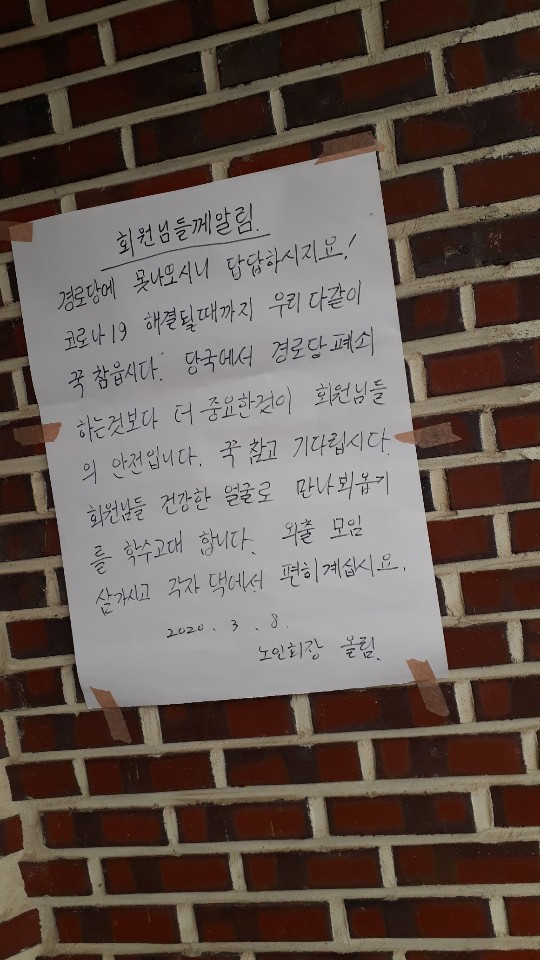 회원님들께알림.
경로당에 못나오시니 답답하시지요!
코로나19 해결될때까지 우리 다같이
꾹 참읍시다. 당국에서 경로당 폐쇠
하는것보다 더 중요한것이 회원님들
의 안전입니다. 꾹 참고 기다립시다.
회원님들 건강한 얼굴로 만나뵈옵기
를 학수고대 합니다. 외출 모임
삼가시고 각자 댁에서 편히계십시요.
2020. 3. 8.
노인회장 올림.